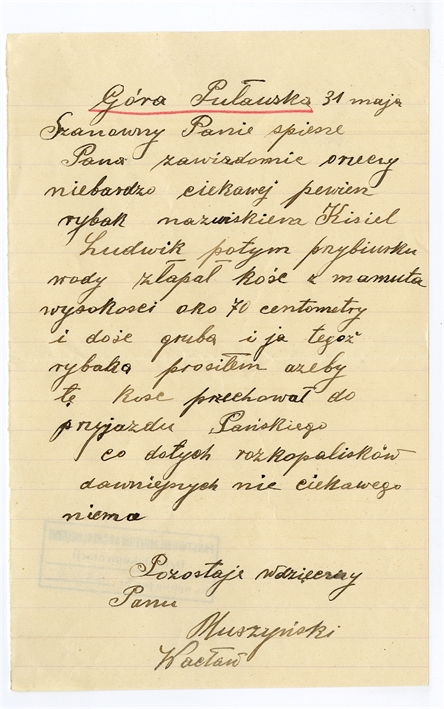 Góra Puławska 31 maja
Szanowny Panie spiesze
Pana zawizdomic orzeczy
niebardzo ciekawej pewien
rybak nazwiskiem Kisiel
Ludwik potym przybiurku
wody złapał kość z mamuta
wysokosci oko 70 centometry
i dosc gruba i ja tegoż
rybaka prosiłem azeby
tę kosc przechował do
przyjazdu Pańskiego
co dotych rozkopalisków
dawniejszych nie ciekawego
niema
Pozostaje wdzięczny
Panu
Muszyński
Wacław